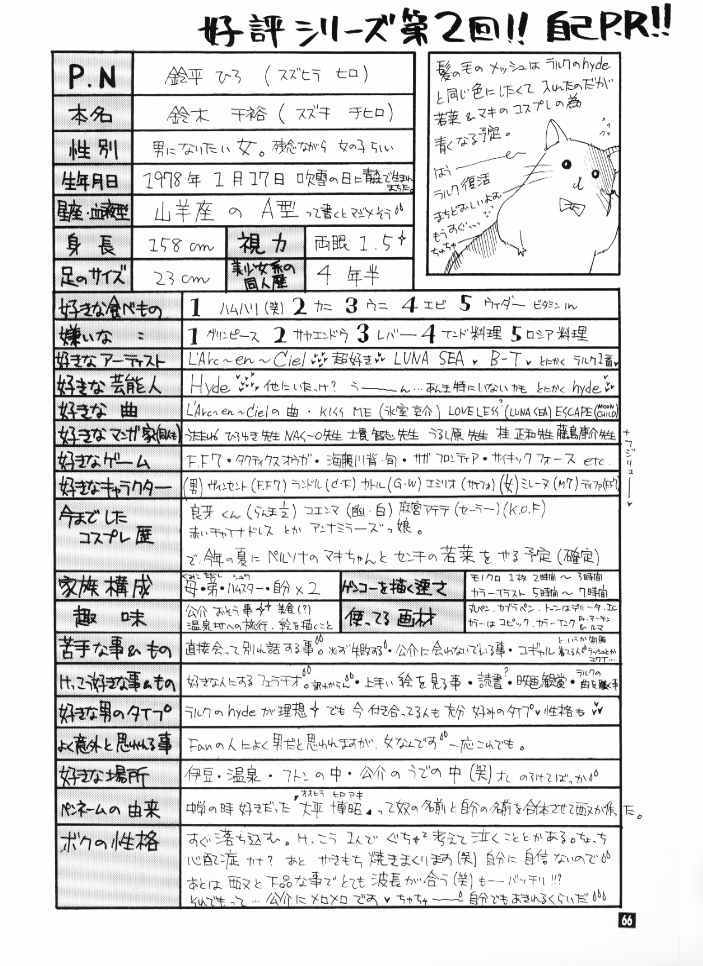 好評シリーズ第2回!! 自己P.R!!
P.N 鈴平 ひろ (スズヒラ ヒロ)
本名 鈴木 千裕 (スズキ チヒロ)
性別 男になりたい女。残念ながら 女の子らしい
生年月日 1978年 1月17日 吹雪の日に青森で生まれました。
星座・血液型 山羊座 の A型 って書くとマジメそう
身長 158cm 視力 両眼 1.5
足のサイズ 23cm 美少女系の同人歴 4年半
髪の毛の メッシュは ラルクのhyde
と同じ色にしたくて 入れたのだが
若菜 & マキのコスプレの為
青くなる予定。
はぅ
ラルク復活
まちどおしいよぉ
もうすぐ…
ちゅちゅ
好きな食べもの 1 ハムハリ(笑) 2 カニ 3 ウニ 4 エビ 5 ウィダー ビタミンin
嫌いな 〃 1 グリンピース 2 サヤエンドウ 3 レバー 4 インド料理 5 ロシア料理
好きな アーティスト L'Arc~en~Ciel 超好き LUNA SEA B-T とにかく ラルク1番
好きな 芸能人 Hyde 他にいたっけ? う———ん…あんま特にいないかも とにかく hyde
好きな 曲 L'Arc~en~Cielの曲・KISS ME (氷室京介) LOVELESS (LUNA SEA) ESCAPE (MOON CHILD)
好きなマンガ家 NAC~O先生 士貴智志先生 うるし原先生 桂 正和先生 藤島康介先生
好きなゲーム F.F.7・タクティクスオウガ・海腹川背・旬・サガ フロンティア・サイキックフォース etc.
好きなキャラクター (男)ヴィンセント(F.F.7) ランドル(d・F) カトル(G・W) エミリオ(サイフォ) (女)ミレーヌ(M7) ティファ(F.F.7)
今までした コスプレ歴 良牙くん(らんま1/2) コエンマ(幽・白) 麻宮アテナ(セーラー)(K.O.F)
赤いチャイナドレス とか アンナミラーズっ娘。
で 今年の夏に ペルソナの マキちゃんと センチの 若菜 を やる予定 (確定)
家族構成 母・弟・ハムスター・自分×2 ゲンコーを描く速さ モノクロ 1枚 2時間~3時間
カラーイラスト 5時間~7時間
趣味 公介 おそう事 美食(?)
温泉地への旅行、絵を描くこと 使ってる画材 丸ペン、カブラペン、トーンはデリータ、I.C
カラーはコピック、カラーインク
苦手な事&もの 直接会って別れ話する事。水ぎ失敗する・公介に会えないでいる事・コギャル
けっこう好きな事&もの 好きな人にするフェラチオ。訳わからん・上手い絵を見る事・読書?・映画鑑賞・ラルクの曲を聴く事
好きな男のタイプ ラルクのhydeが理想 でも 今付き合ってる人も 充分 好みのタイプ 性格も
よく意外と思われる事 Fanの人によく男だと思われますが、女なんです 一応これでも。
好きな場所 伊豆・温泉・フトンの中・公介のうでの中(笑) オレ のろけてばっか
ペンネームの由来 中学の時 好きだった 大平 博昭 って奴の名前と自分の名前を合体させて西又が作った。
オオヒラ ヒロアキ
ボクの性格 すぐ落ち込む。けっこう 1人で ぐちゃぐちゃ考えて泣くこととかある。
心配症 かな? あと やきもち 焼きまくります(笑) 自分に 自信ないので
あとは 西又と 下品な事で とても 波長が合う(笑) もーーバッチリ!!?
それでもって… 公介にメロメロです ちゅちゅ——— 自分でもあきれるくらいだ
66